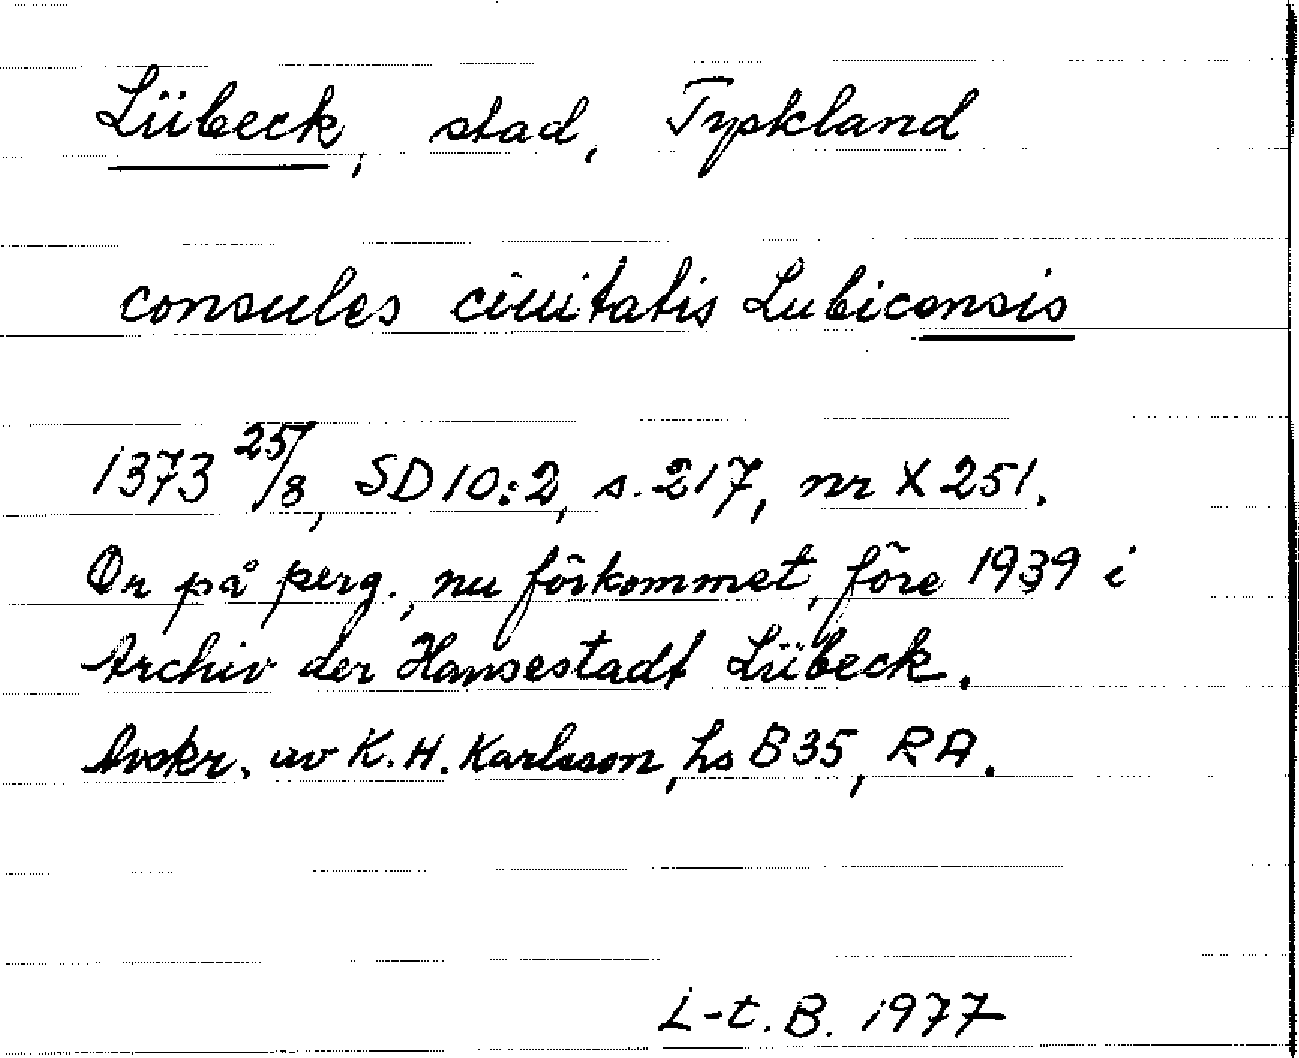 Lübeck, stad, Tyskland
consules ciuitatis Lubicensis
1373 25/8, SD 10:2, s. 217, nr X 251.
Or på perg., nu förkommet, före 1939 i
Archiv der Hansestadt Lübeck.
Avskr. av K.H. Karlsson, hs B35, RA.
L-t. B. 1977